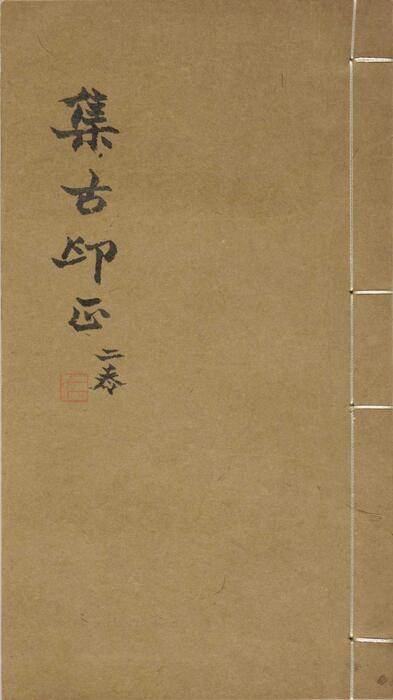 集古印正
二